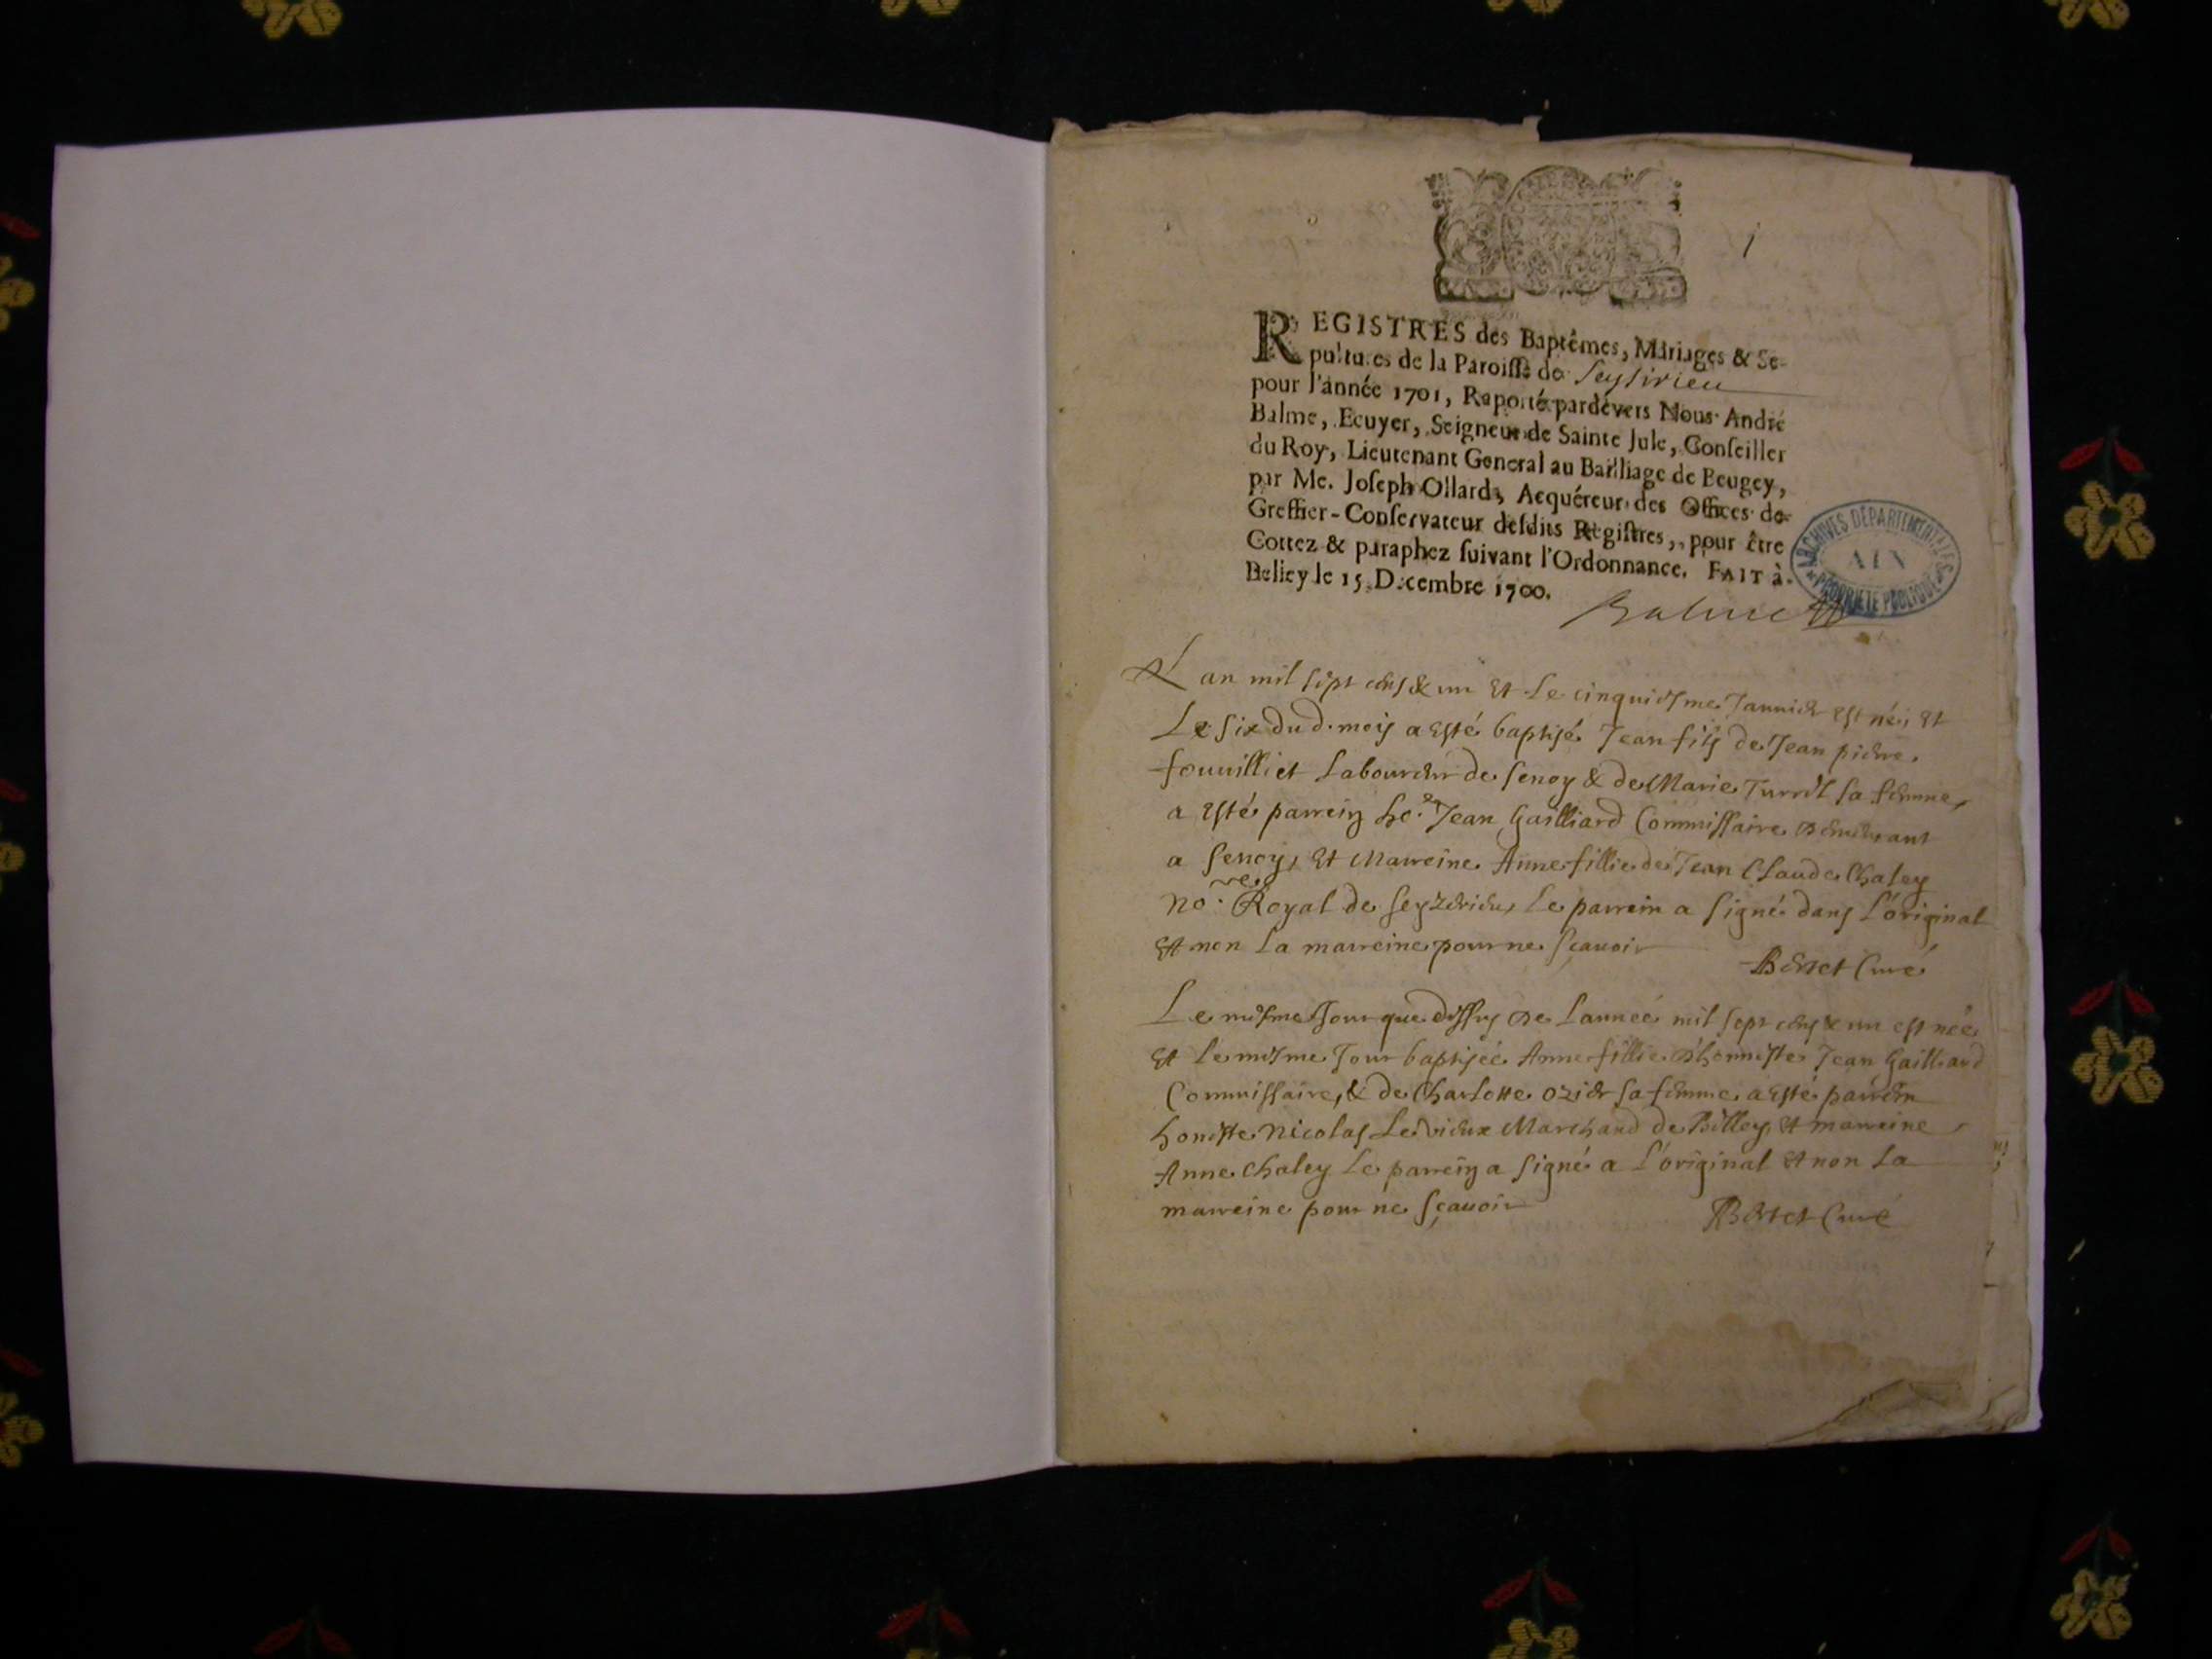 1
REGISTRES des Baptêmes, Mariages & Se-
pultures de la Paroisse de Seysirieu
pour l'année 1701, Raporté pardévers Nous André
Balme, Ecuyer, Seigneur de Sainte Jule, Conseiller
du Roy, Lieutenant General au Bailliage de Beugey,
par Me. Joseph Ollard, Acquéreur des Offices de
Greffier-Conservateur desdits Registres, pour être
Cottez & paraphez suivant l'Ordonnance. FAIT à
Belley le 15 Decembre 1700.
Balme
ARCHIVES DÉPARTEMENTALES
AIN
PROPRIÉTÉ PUBLIQUE
L an mil sept cens & un et Le cinquiesme Januier est né, et
Le six du d. mois a esté baptisé Jean fils de Jean pierre
fouuilliet Laboureur de Senoy & de Marie Turrel sa femme,
a esté parrein Jean Gailliard Commissaire demeurant
a Senoy, et Marreine Anne fillie de Jean Claude Chaley
no.re Royal de Seyzerieu, Le parrein a signé dans L'original
et non La marreine pour ne sçauoir
Bertet Curé
Le mesme Jour que dessus de Lannée mil sept cens & un est née
et Le mesme Jour baptisée Anne fillie d'honneste Jean Gailliard
Commissaire, & de Charlotte ozier sa femme a esté parrein
honeste Nicolas Levieux Marchand de Billey, et marreine
Anne Chaley Le parrein a signé a L'original et non La
marreine pour ne sçauoir
Bertet Curé